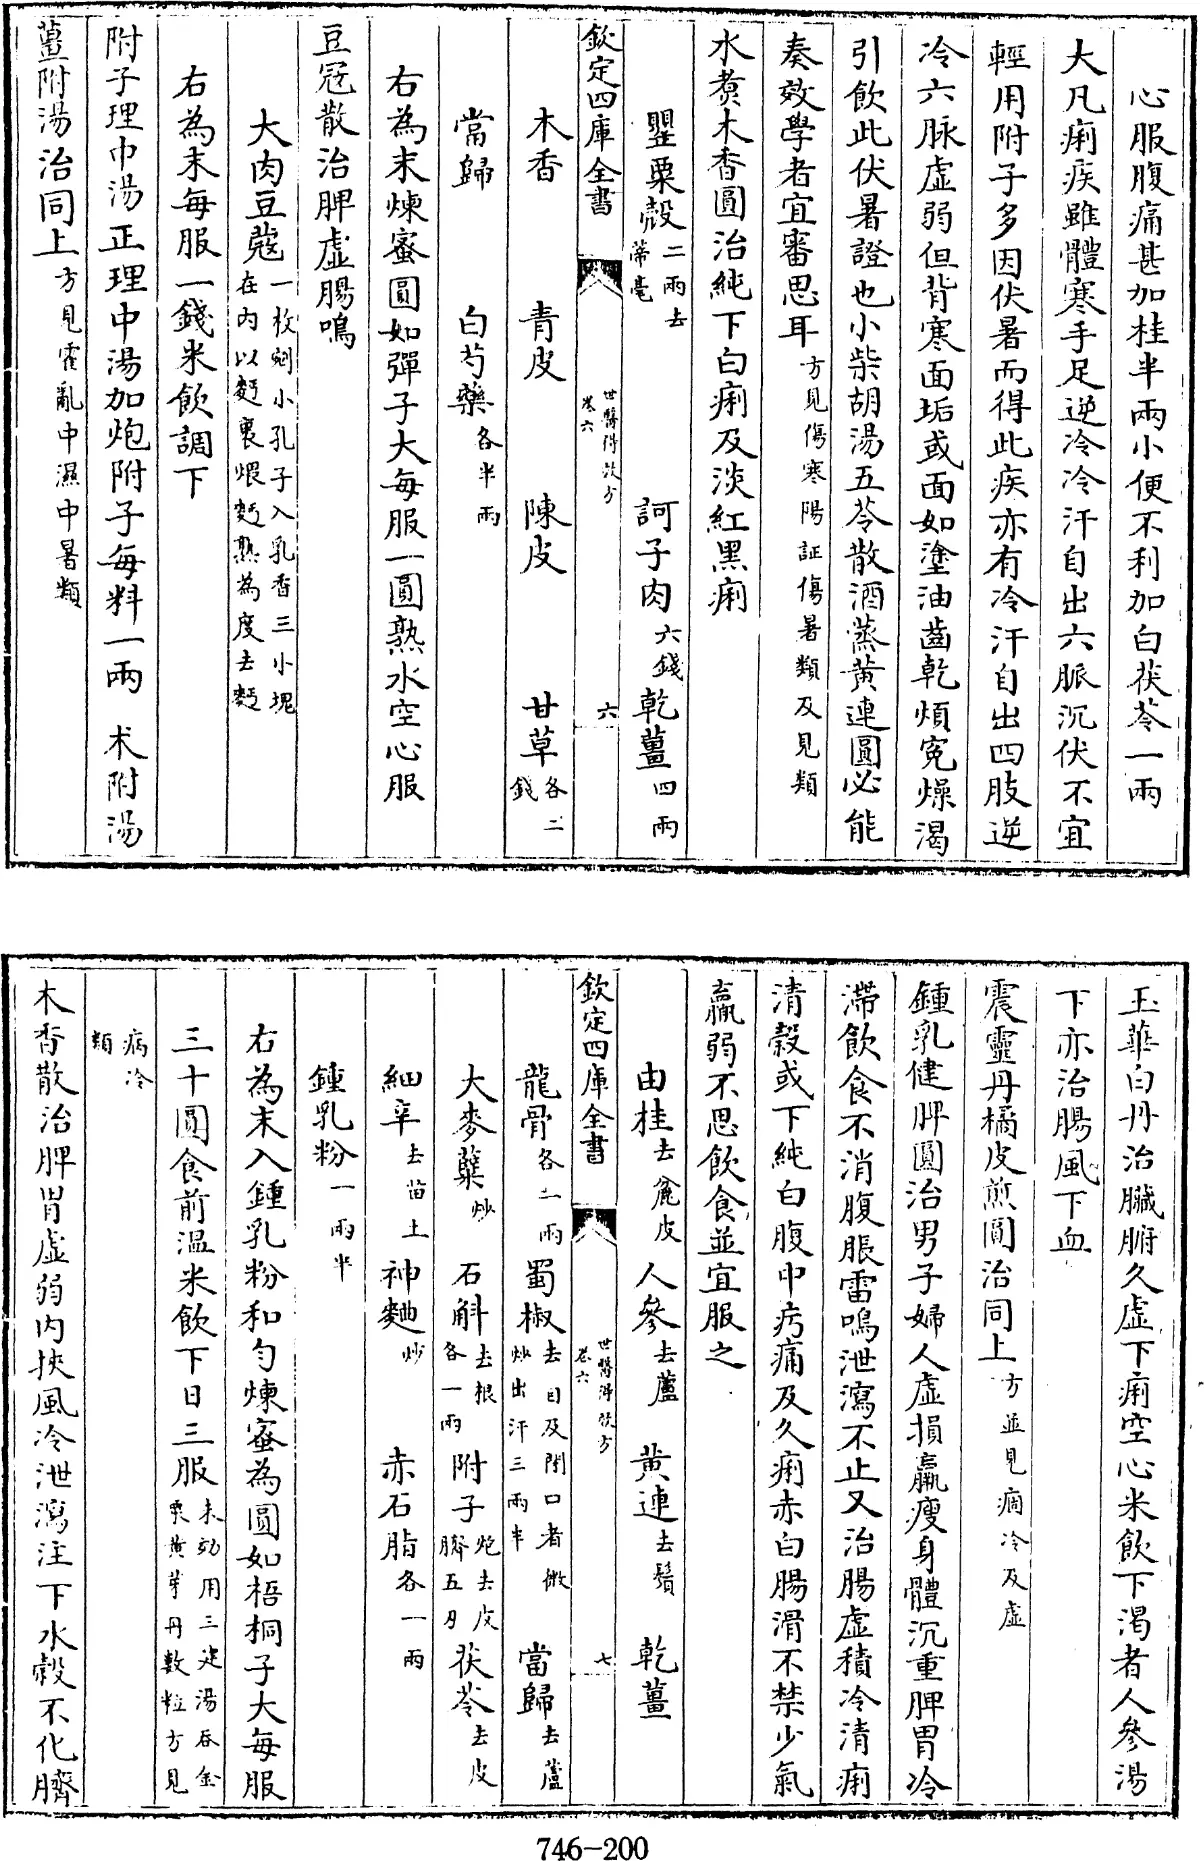 心服腹痛甚加桂半兩小便不利加白茯苓一兩
大凡痢疾雖體寒手足逆冷冷汗自出六脈沉伏不宜
輕用附子多因伏暑而得此疾亦有冷汗自出四肢逆
冷六脉虛弱但背寒面垢或面如塗油齒乾煩寃燥渴
引飲此伏暑證也小柴胡湯五苓散酒蒸黄連圓必能
奏效學者宜審思耳方見傷寒陽証傷暑類及見類
水煑木香圓治純下白痢及淡紅黑痢
罌粟殻二兩去蒂毫 訶子肉六錢 乾薑四兩
欽定四庫全書 世醫得效方 卷六 六
木香 青皮 陳皮 甘草各二錢
當歸 白芍藥各半兩
右為末煉蜜圓如彈子大每服一圓熟水空心服
豆冦散治脾虛腸鳴
大肉豆蔻一枚剜小孔子入乳香三小塊在内以麪裹煨麪熟為度去麪
右為末每服一錢米飲調下
附子理中湯正理中湯加炮附子每料一兩 术附湯
薑附湯治同上方見霍亂中濕中暑類
玉華白丹治臟腑久虛下痢空心米飲下渴者人參湯
下亦治腸風下血
震靈丹橘皮煎圓治同上方並見痼冷及虛
鍾乳健脾圓治男子婦人虛損羸瘦身體沉重脾胃冷
滯飲食不消腹脹雷鳴泄瀉不止又治腸虛積冷清痢
清穀或下純白腹中㽲痛及久痢赤白腸滑不禁少氣
羸弱不思飲食並宜服之
由桂去麄皮 人參去蘆 黄連去鬚 乾薑
欽定四庫全書 世醫得效方 卷六 七
龍骨各二兩 蜀椒去目及閉口者微炒出汗三兩半 當歸去蘆
大麥蘖炒 石斛去根各一兩 附子炮去皮臍五 茯苓去皮
細辛去苗土 神麯炒 赤石脂各一兩
鍾乳粉一兩半
右為末入鍾乳粉和勻煉蜜為圓如梧桐子大每服
三十圓食前温米飲下日三服未効用三建湯吞金粟黄芽丹數粒方見
病冷類
木香散治脾胃虛弱内挾風冷泄瀉注下水穀不化臍